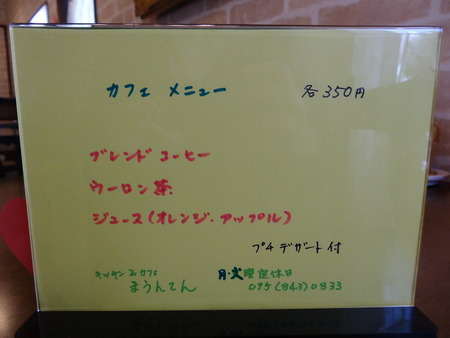 カフェ メニュー 各350円
ブレンドコーヒー
ウーロン茶
ジュース(オレンジ・アップル)
プチデザート付
キッチン&カフェ 月・火曜定休日
まうんてん 095(843)0833